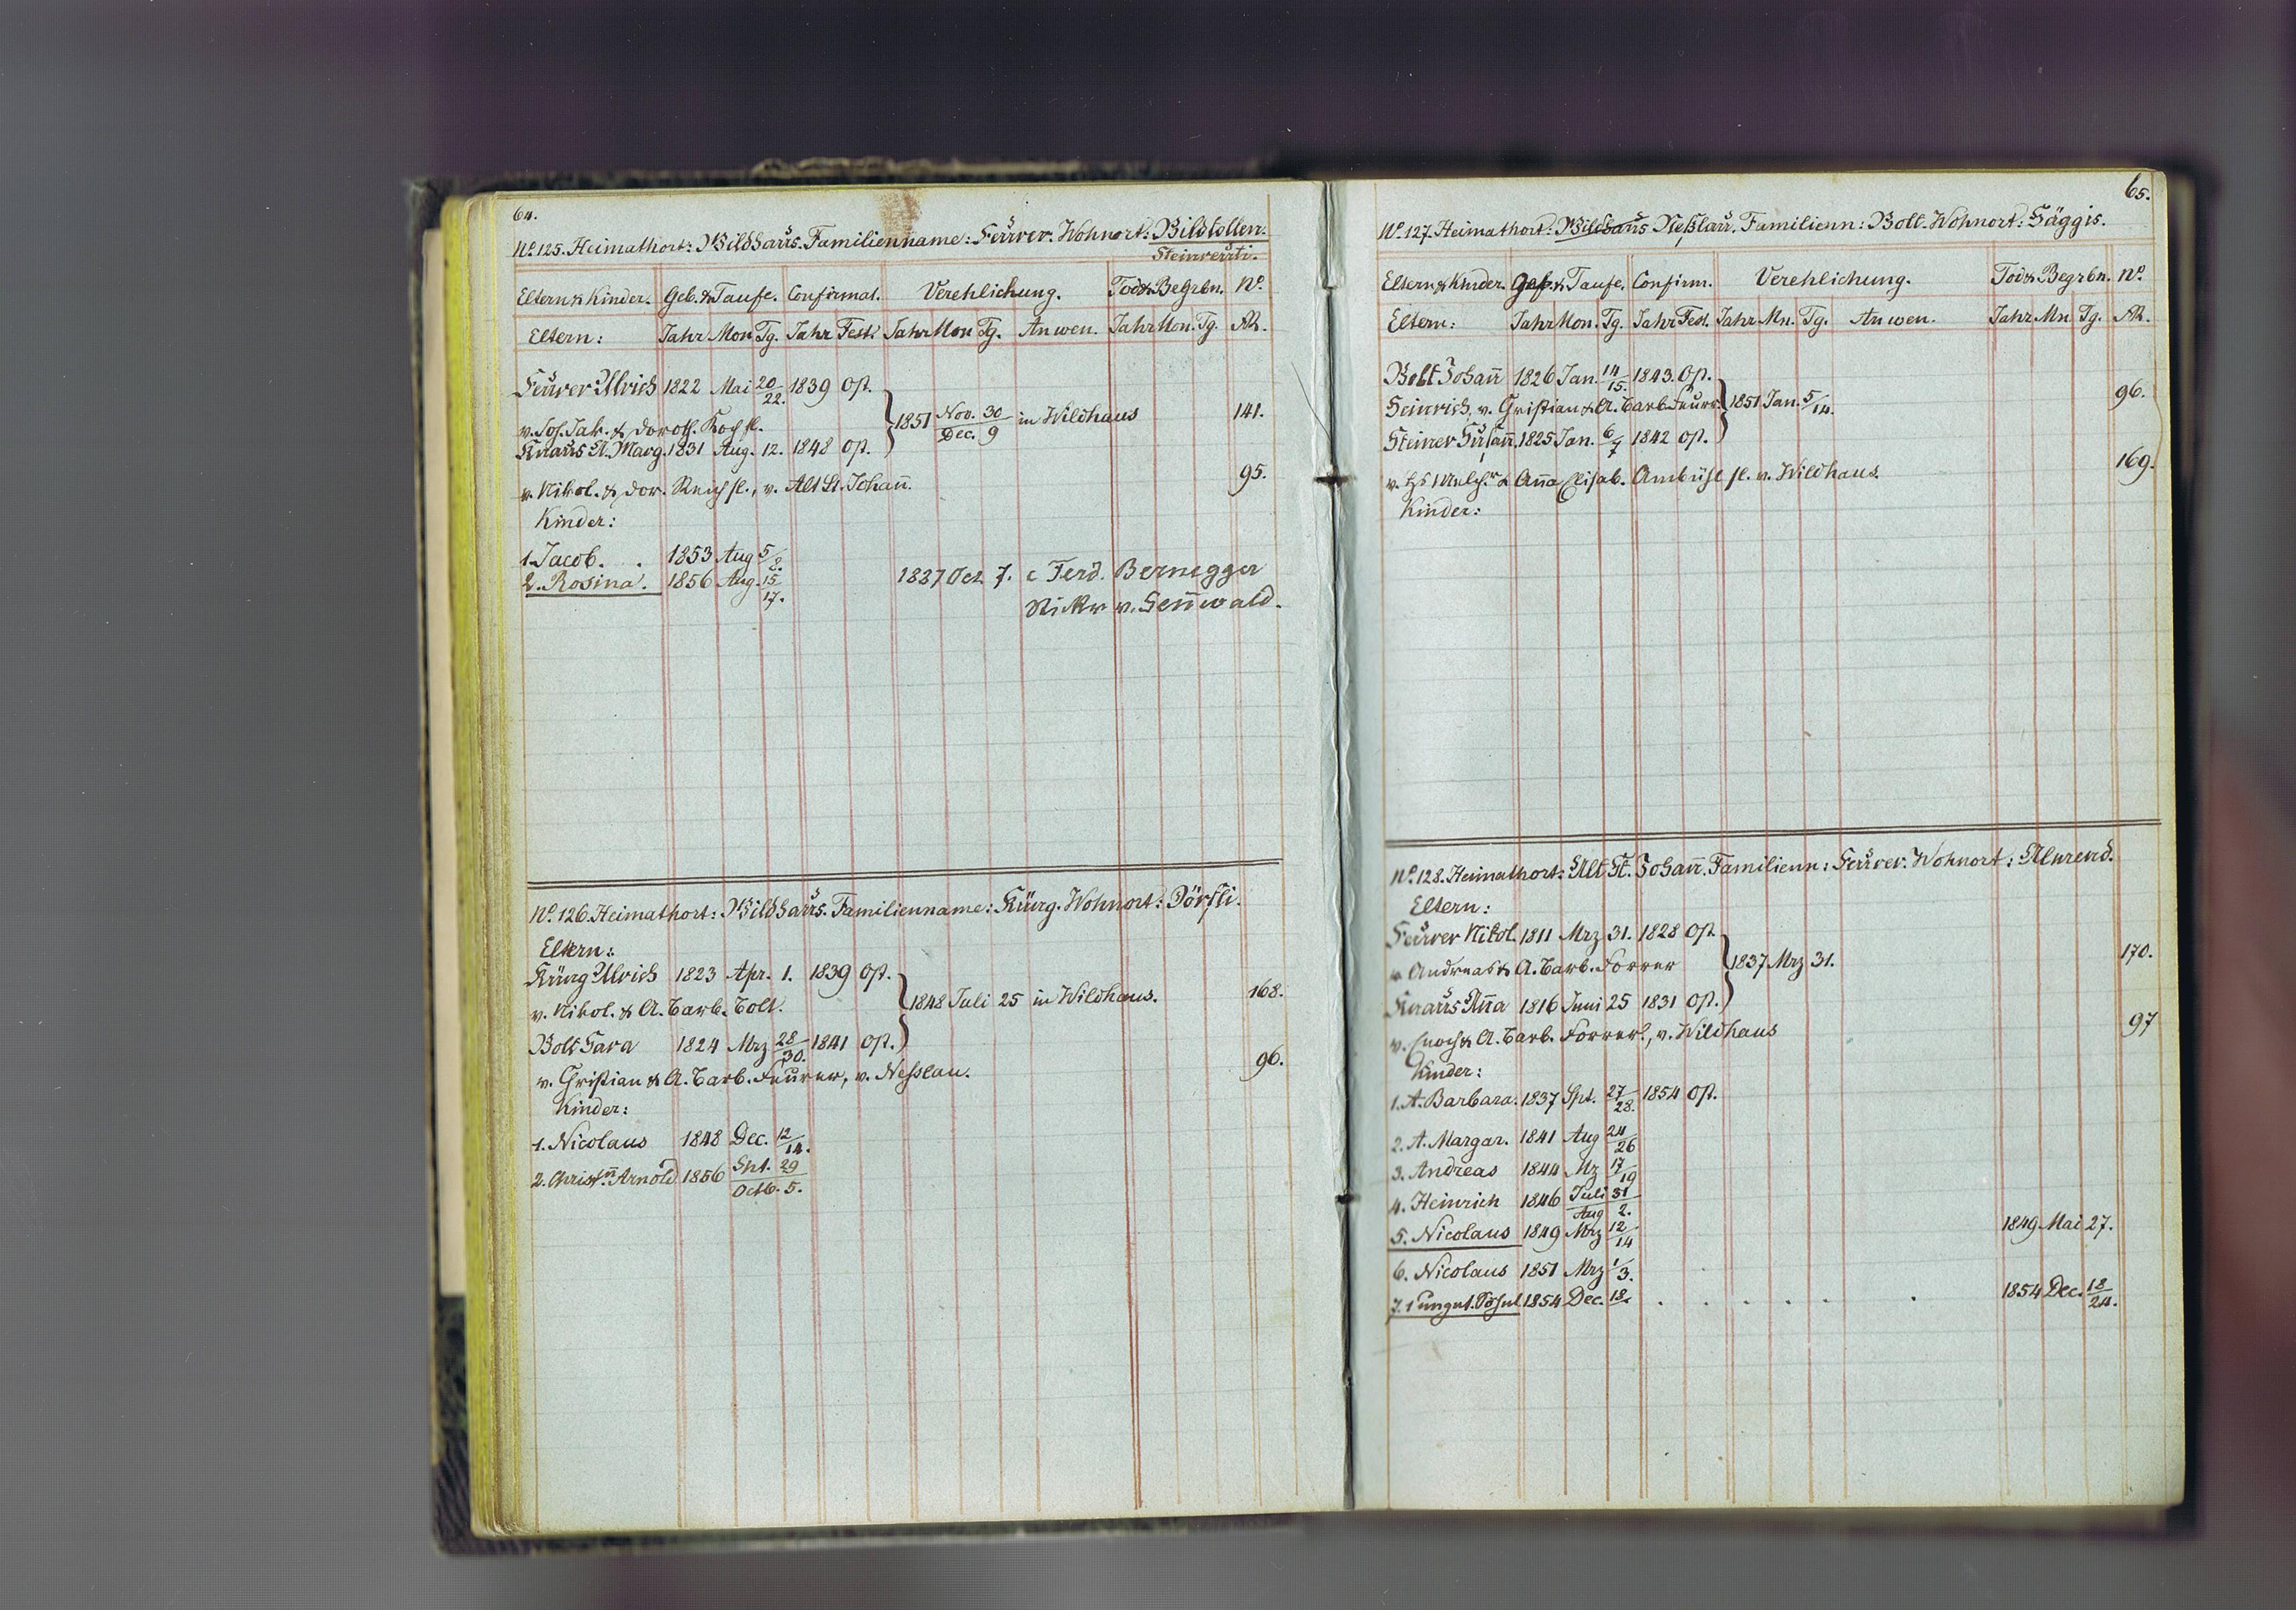 64.
No. 125. Heimathort: Wildhaus. Familienname: Feurer. Wohnort: Bildtollen.
Steinreuti.
Eltern & Kinder. Geb. & Taufe. Confirmat. Verehlichung. Tod & Begrbn. No.
Eltern: Jahr Mon Tg. Jahr Fest. Jahr Mon Tg. An wen. Jahr Mon. Tg. AR.
Feurer Ulrich 1822 Mai 20/22. 1839 Ost.
v. Joh. Jak. & Doroth. Koch sl. 1851 Nov. 30/Dec. 9 in Wildhaus 141.
Knaus A. Marg. 1831 Aug. 12. 1848 Ost.
v. Nikol. & Dor. Reich sl., v. Alt St. Johañ. 95.
Kinder:
1. Jacob. . 1853 Aug 5/8.
2. Rosina. 1856 Aug. 15/17. 1887 Oct 7. c Ferd. Bernegger
v. Señwald.
No. 126. Heimathort: Wildhaus. Familienname: Küng. Wohnort: Dörfli.
Eltern:
Küng Ulrich 1823 Apr. 1. 1839 Ost.
v. Nikol. & A. Barb. Bolt. 1848 Juli 25 in Wildhaus. 168.
Bolt Sara 1824 Mrz 28/30. 1841 Ost.
v. Christian & A. Barb. Feurer, v. Nesslau. 96.
Kinder:
1. Nicolaus 1848 Dec. 12/14.
2. Christñ Arnold 1856 Spt. 29/Octb. 5.
65.
No. 127. Heimathort: Wildhaus Neßlau. Familienn: Bolt. Wohnort: Häggis.
Eltern & Kinder. Geb. & Taufe. Confirm. Verehlichung. Tod & Begrbn. No.
Eltern: Jahr Mon. Tg. Jahr Fest. Jahr Mn. Tg. An wen. Jahr Mn Tg. AR.
Bolt Johañ 1826 Jan. 14/15. 1843. Ost.
Heinrich, v. Christian & A. Barb. Feurr. 1851 Jan. 5/14. 96.
Steiner Susañ. 1825 Jan. 6/7 1842 Ost.
v. Hs Melch. & Aña Elisab. Ambühl sl. v. Wildhaus. 169.
Kinder:
No. 128. Heimathort: Alt St. Johañ. Familienn: Feurer. Wohnort: Almend.
Eltern:
Feurer Nikol. 1811 Mrz 31. 1828 Ost.
v. Andreas & A. Barb. Forrer 1837 Mrz 31. 170.
Knaus Aña 1816 Juni 25 1831 Ost.
v. Enoch & A. Barb. Forrer, v. Wildhaus 97
Kinder:
1. A. Barbara. 1837 Spt. 27/28. 1854 Ost.
2. A. Margar. 1841 Aug 24/26
3. Andreas 1844 Mz 17/19
4. Heinrich 1846 Juli 31/Aug 2.
5. Nicolaus 1849 Mrz 12/14 1849 Mai 27.
6. Nicolaus 1851 Mrz 1/3.
7. 1 unget. 1854 Dec. 18. . . . . . . . 1854 Dec. 18/24.